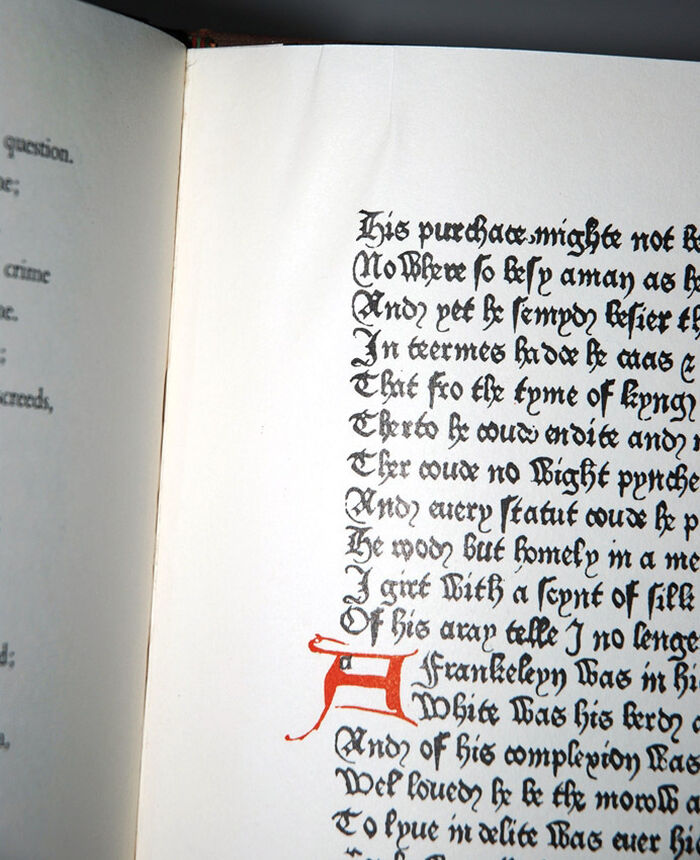 question.
crime
screeds,
His purchace mighte not
No Where so besy aman as
And yet he semyd besier
In teermes hadde he caas &
That fro the tyme of kyng
Therto he coude endite and
Ther coude no Wight pynche
And euery statut coude he
He rood but homely in a
I girt With a seynt of silk
Of his aray telle I no
A Frankeleyn Was in
White Was his berd
And of his complexion Was
Wel loued he be the morow
To lyue in delite Was euer